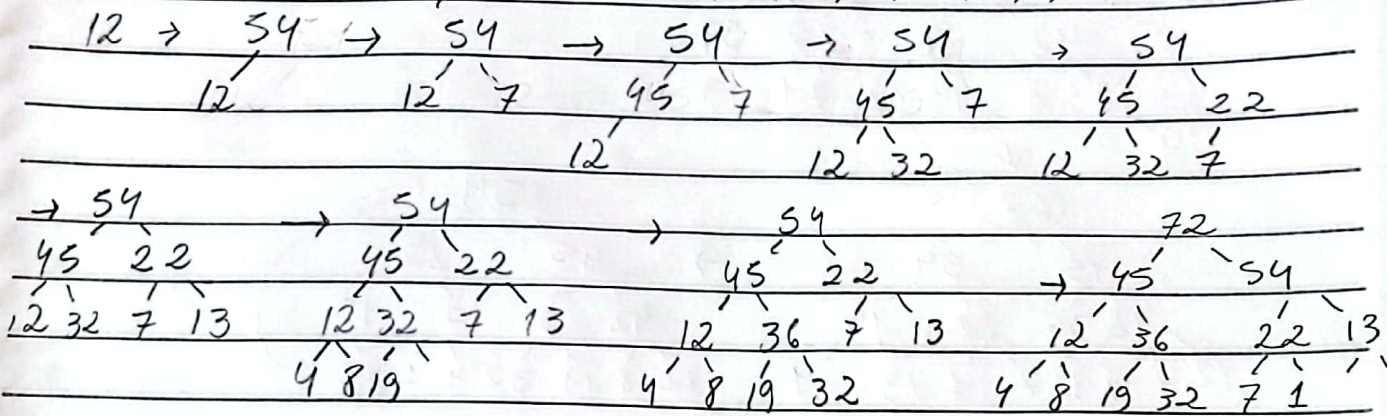 12 → 54 → 54 → 54 → 54 → 54
12 12 7 45 7 45 7 45 22
12 12 32 12 32 7
→ 54 → 54 → 54 72
45 22 45 22 45 22 → 45 54
12 32 7 13 12 32 7 13 12 36 7 13 12 36 22 13
4 8 19 4 8 19 32 4 8 19 32 7 1